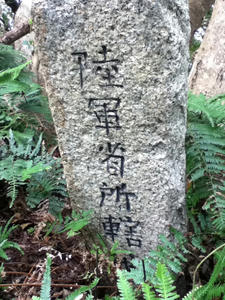 陸軍省所轄